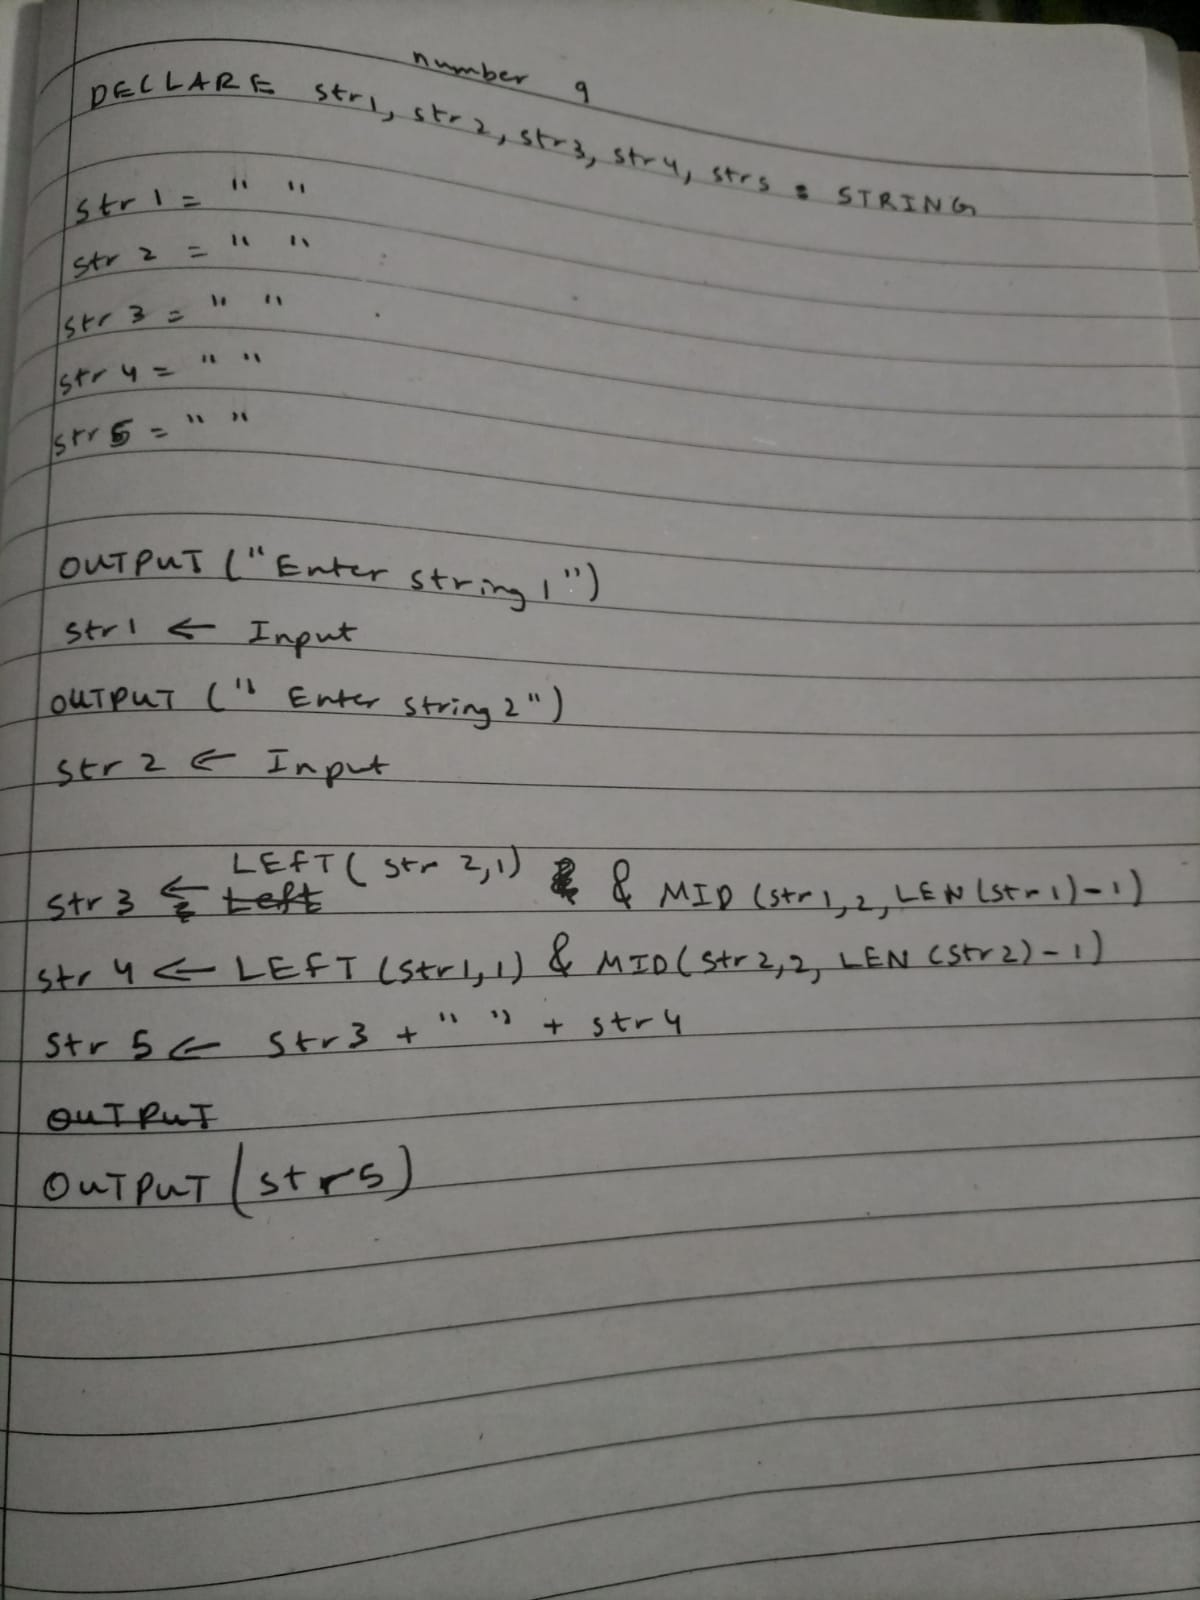 number 9
DECLARE str1, str2, str3, str4, str5 : STRING
str1 = " "
str2 = " "
str3 = " "
str4 = " "
str5 = " "
OUTPUT ("Enter string 1")
str1 ← Input
OUTPUT (" Enter string 2")
str2 ← Input
str3 ← LEFT(str2,1) & MID (str1,2, LEN(str1)-1)
str4 ← LEFT (str1,1) & MID(str2,2, LEN (str2)-1)
str5 ← str3 + " " + str4
OUTPUT
OUTPUT (str5)